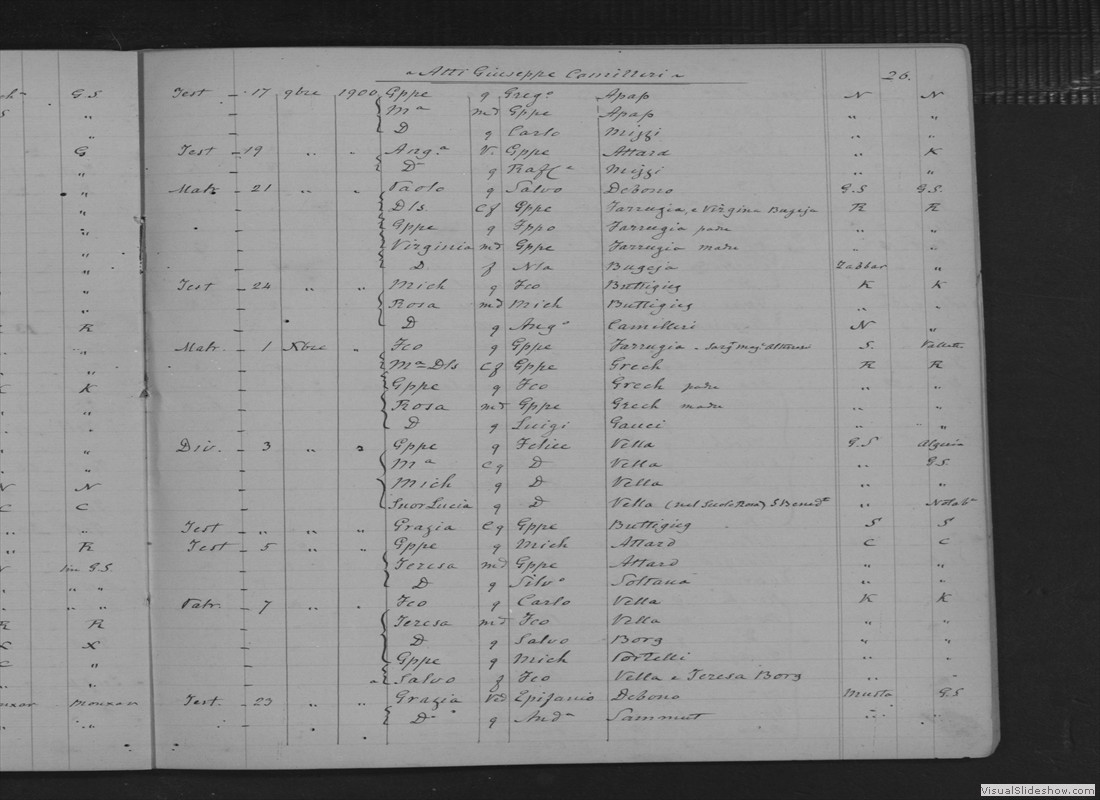 "Atti Giuseppe Camilleri"
26.
G.S Test – 17 9bre 1900 Gppe g Greg.o Apap N N
S " – Mª md Gppe Apap " "
" – D g Carlo Mizzi " "
G Test – 19 " " Ang.a V. Gppe Attard " K
" – D g Raf Mizzi " "
" Matr – 21 " " Paolo g Salvo Debono G.S G.S.
" – Dls cf Gppe Farrugia, e Virginia Bugeja K K
" – Gppe g Fppo Farrugia padre " "
" – Virginia md Gppe Farrugia madre " "
" – D f Nta Bugeja Zabbar "
" Test – 24 " " Mich g Fco Buttigieg K K
" – Rosa md Mich Buttigieg " "
K – D g Ang.o Camilleri N "
" Matr. – 1 Xbre " Fco g Gppe Farrugia S. Valletta
" – Mª Dls cf Gppe Grech K K
K K – Gppe g Fco Grech padre " "
" – Rosa md Gppe Grech madre " "
" – D g Luigi Gauci " "
" Div. – 3 " " Gppe g Felice Vella G.S Algeria
" – Mª cg D Vella " G.S.
N N – Mich g D Vella " "
C C – Suor Lucia g D Vella " Notab.e
" " Test – " " " Grazia cg Gppe Buttigieg S S
K Test – 5 " " Gppe g Mich Attard C C
G.S – Teresa md Gppe Attard " "
" " – D g Silv.o Soltana " "
" " Patr. – 7 " " Fco g Carlo Vella K K
K K – Teresa md Fco Vella " "
X X – D g Salvo Borg " "
C " – Gppe g Mich Portelli " "
" " – Salvo f Fco Vella e Teresa Borg " "
Mouxar Test. – 23 " " Grazia Vd Epifanio Debono Musta G.S
" " – D g And.a Sammut " "
VisualSlideshow.com